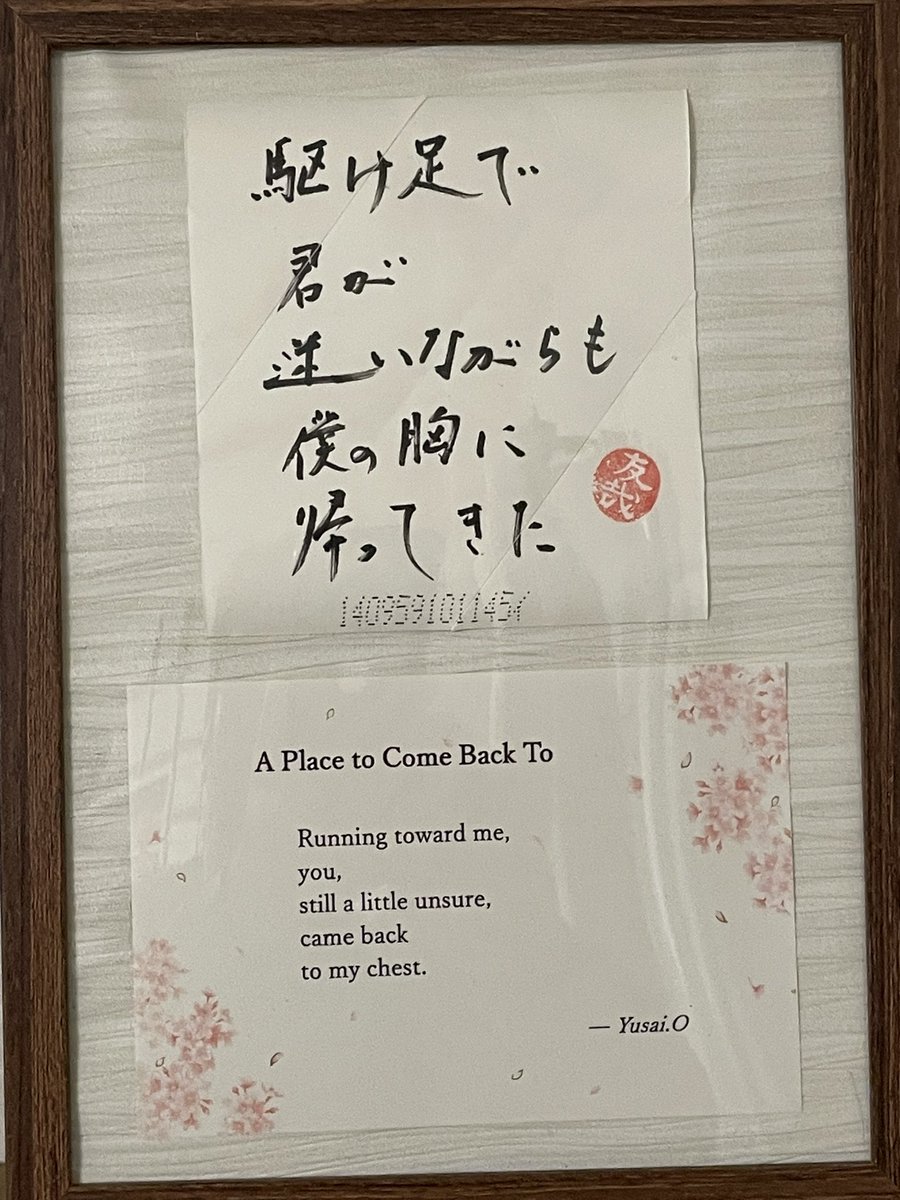 駆け足で
君が
迷いながらも
僕の胸に
帰ってきた
友哉
1409591011457
A Place to Come Back To
Running toward me,
you,
still a little unsure,
came back
to my chest.
— Yusai.O